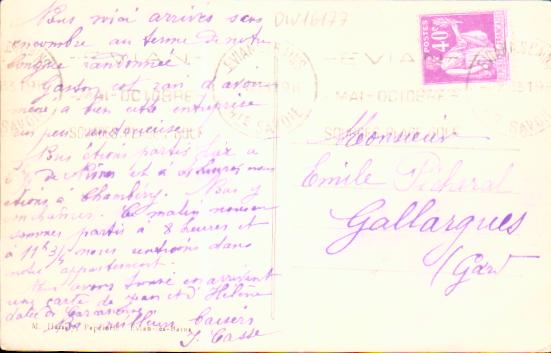 Nous voici arrivés sans
encombre au terme de notre
longue randonnée
Gaston est d'avoir
mené à bien cette entreprise
un peu audacieuse
Nous étions partis à
de Nîmes et à heures nous
étions à Chambéry. Nous y
couchâmes. Ce matin nous en
sommes partis à 8 heures et
à 11h 3/4 nous entrions dans
notre appartement.
Nous avons trouvé en arrivant
une carte de Jean et d'Hélène
datée de
Nos meilleurs baisers
J. Casse
DW16177
POSTES
40c
EVIAN
MAI-OCTOBRE
Monsieur
Emile Pécheral
Gallargues
(Gard)
Evian-les-Bains